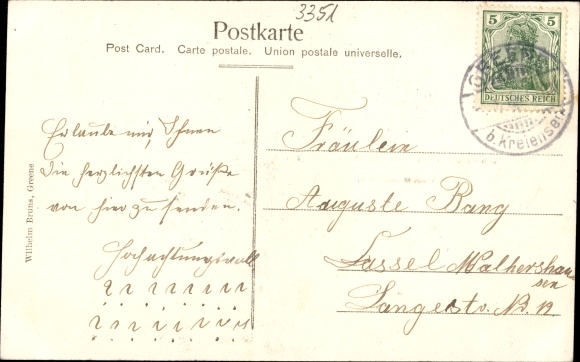 3351
Postkarte
Post Card. Carte postale. Union postale universelle.
5 5
DEUTSCHES REICH
GREENE
b. Kreiensen
Wilhelm Bruns, Greene
Erlaube mir, Ihnen
die herzlichsten Grüße
von hier zu senden.
Hochachtungsvoll
Fräulein
Auguste Bang
Cassel Walhershau
sen
Langestr. No.